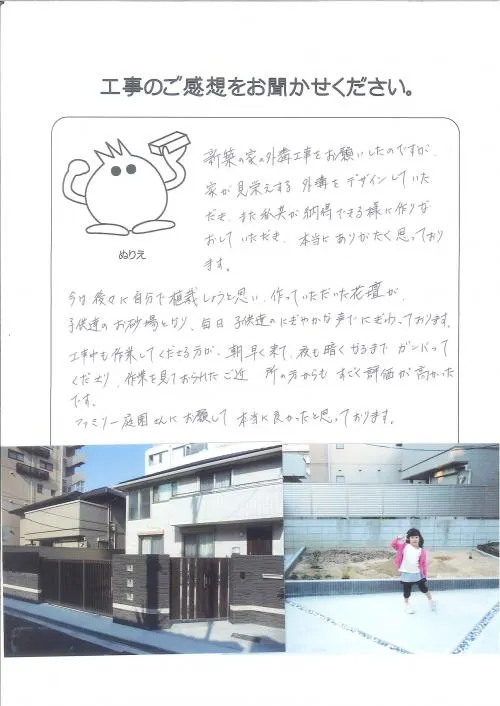 工事のご感想をお聞かせください。
ぬりえ
新築の家の外構工事をお願いしたのですが、
家が見栄えする外構をデザインしていた
だき、また私共が納得できる様に作りな
おしていただき、本当にありがたく思っており
ます。
今は後々に自分で植栽しようと思い、作っていただいた花壇が、
子供達のお砂場となり、毎日子供達のにぎやかな声でにぎわっております。
工事中も作業してくださる方が、朝早く来て、夜も暗くなるまでガンバって
くださり、作業を見ておられたご近所の方からもすごく評価が高かった
です。
ファミリー庭園さんにお願して本当に良かったと思っております。